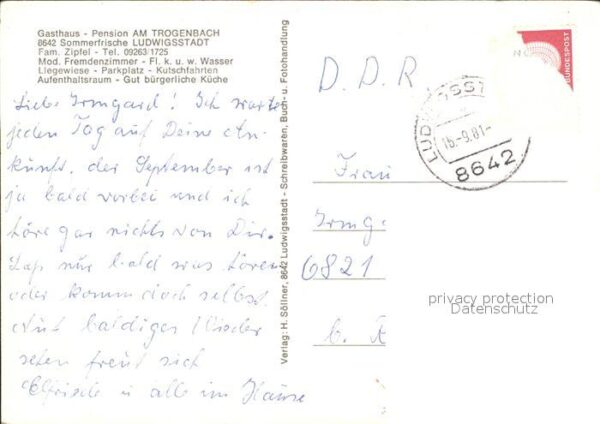 Gasthaus - Pension AM TROGENBACH
8642 Sommerfrische LUDWIGSSTADT
Fam. Zipfel - Tel. 09263/1725
Mod. Fremdenzimmer - Fl. k. u. w. Wasser
Liegewiese - Parkplatz - Kutschfahrten
Aufenthaltsraum - Gut bürgerliche Küche
Liebe Irmgard! Ich warte
jeden Tag auf Deine An-
kunft, der September ist
ja bald vorbei und ich
höre gar nichts von Dir.
Lass nur bald was hören
oder komm doch selbst.
Auf baldiges Wieder
sehen freut sich
Elfriede u alle im Hause
Verlag: H. Söllner, 8642 Ludwigsstadt - Schreibwaren, Buch- u. Fotohandlung
D. D. R
DEUTSCHE BUNDESPOST
16.-9.81-
8642
Frau
Irmg.
6821
b. R
privacy protection
Datenschutz